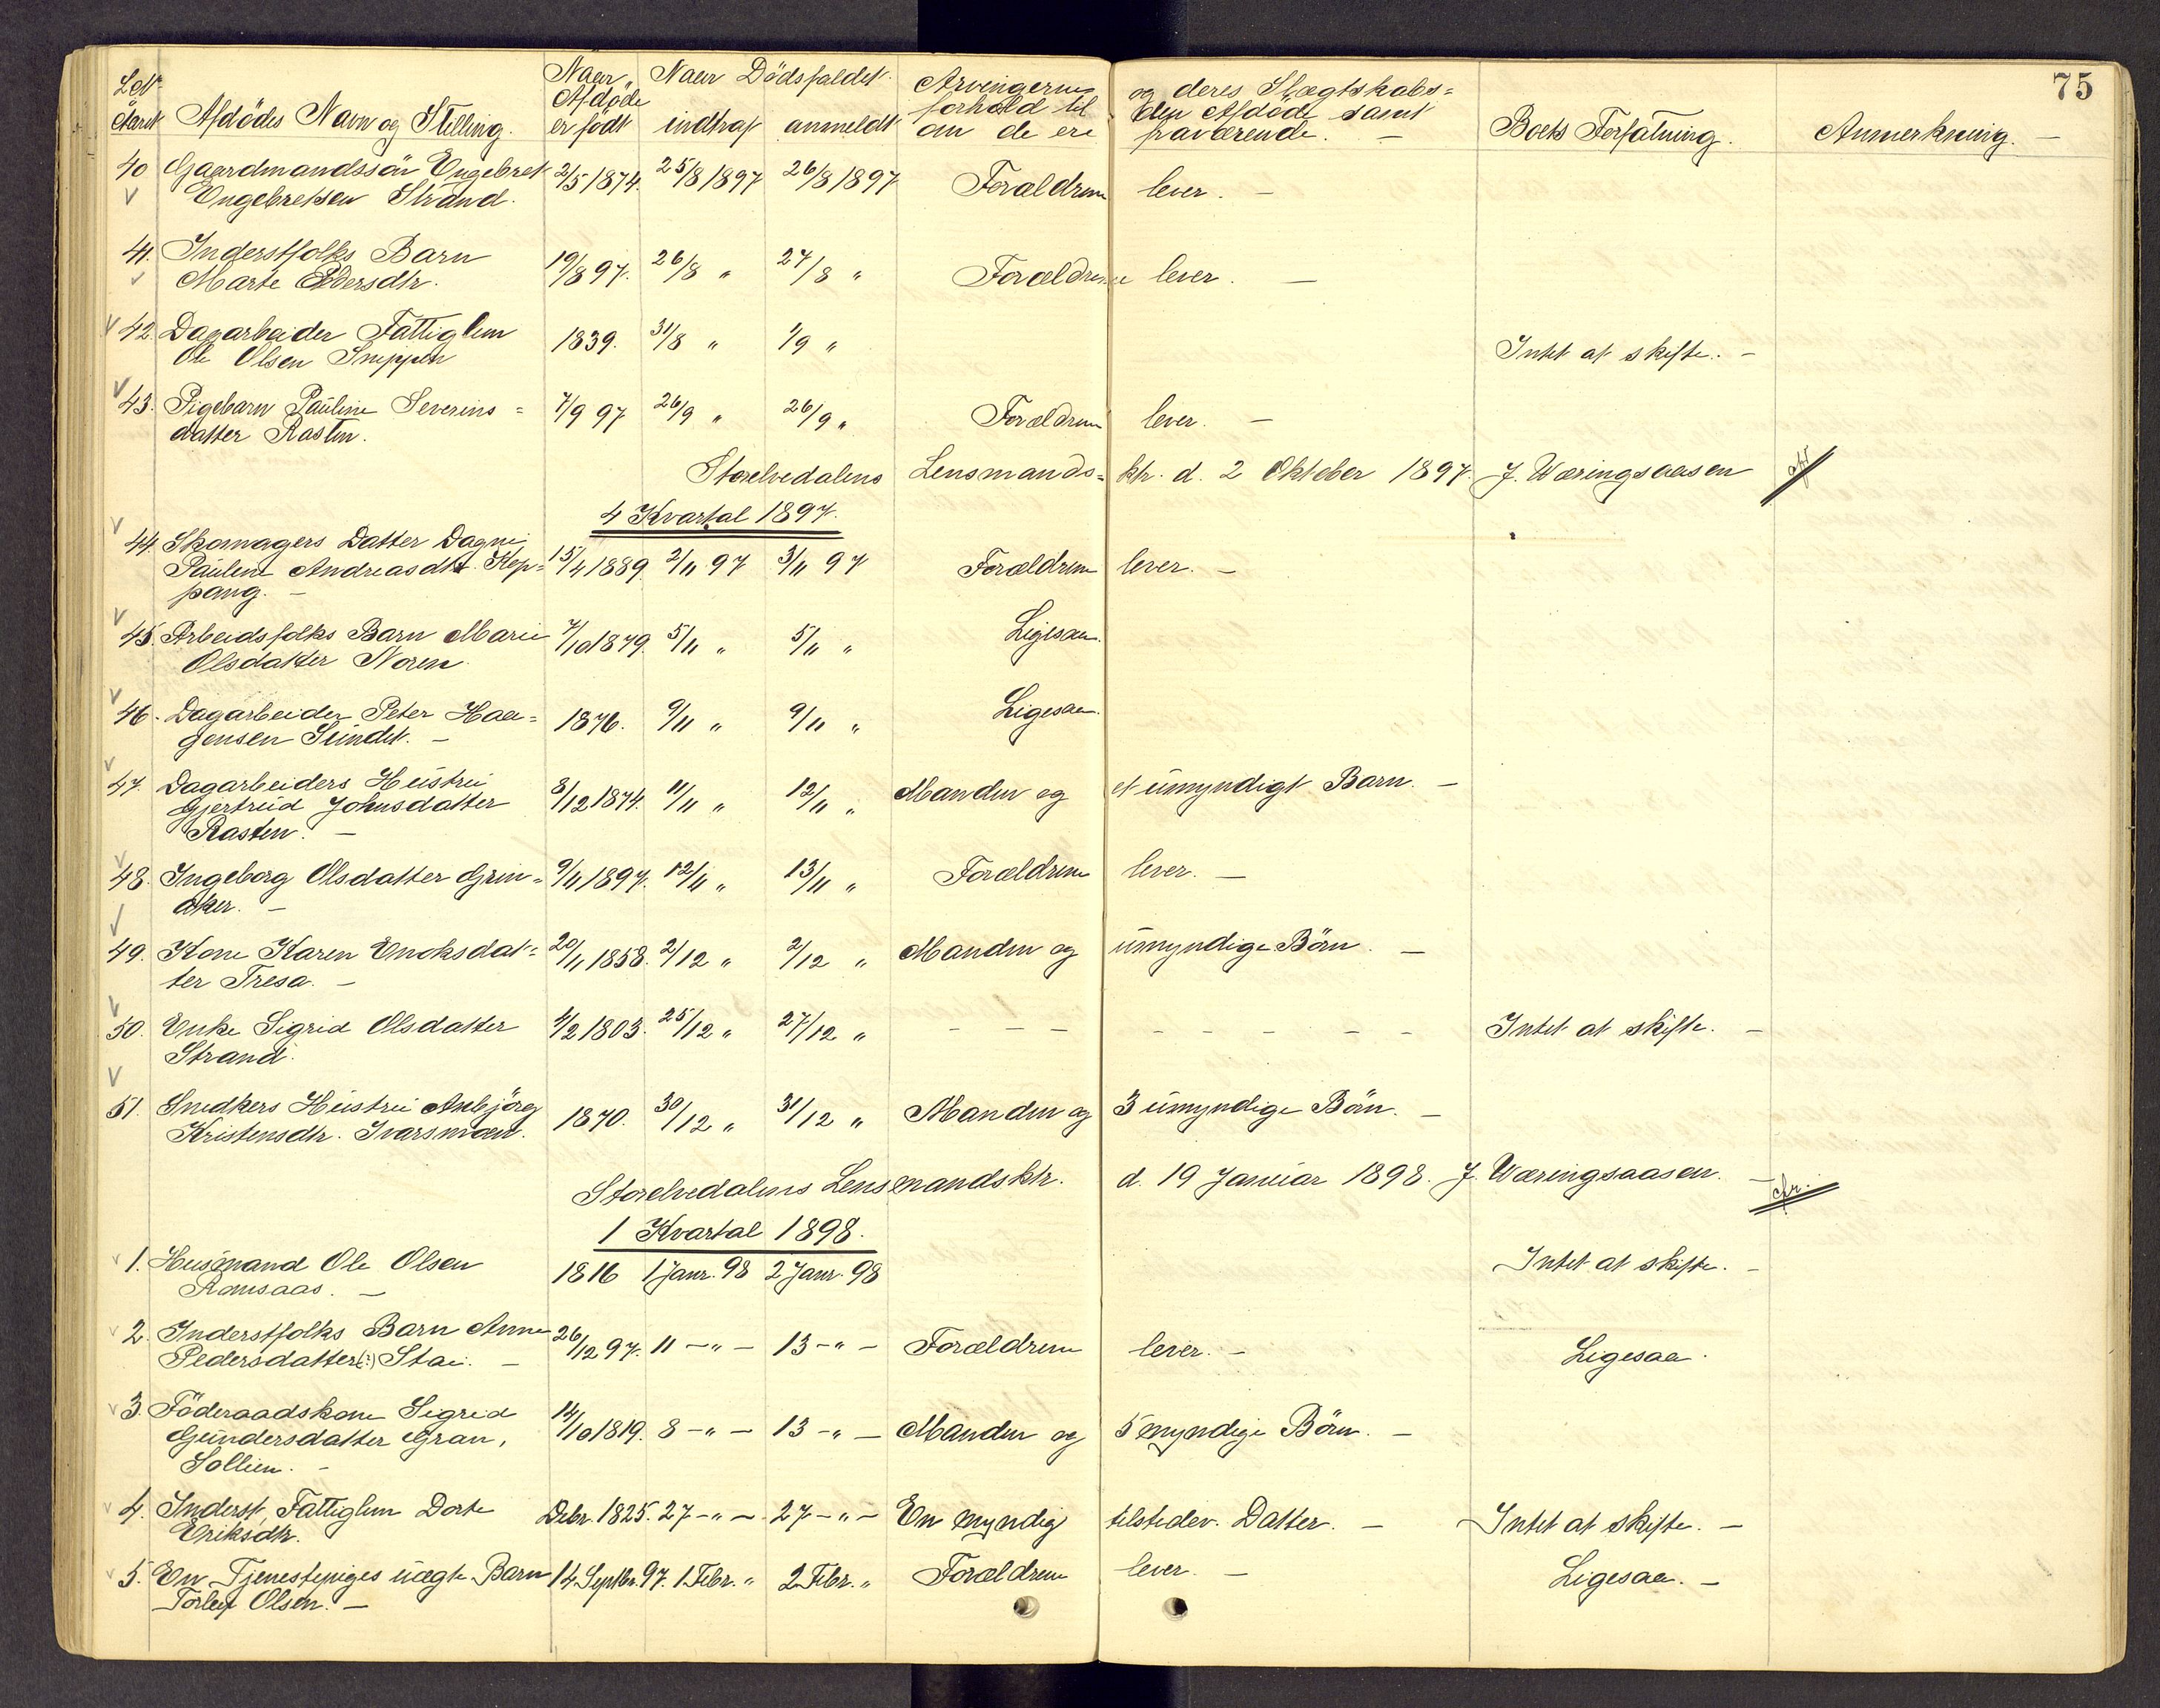 75
LNo Naar Naar Dødsfaldet Arvingernes og deres Slægtskabs=
Afdøde forhold til den Afdøde samt
Aaret Afdødes Navn og Stilling. er født indtraf anmeldt om de ere fraværende. — Boets Forfatning. Anmerkning. —
40 Gaardmandssön Engebret 2/5 1874. 25/8 1897 26/8 1897 Forældrene lever. —
Engebretsen Strand.
41. Inderstfolks Barn 19/8 97. 26/8 " 27/8 " Forældrene lever. —
Marte Pedersdtr.
42. Dagarbeider Fattiglem 1839. 31/8 " 1/9 " Intet at skifte. —
Ole Olsen Sneppen
43. Pigebarn Pauline Severins= 7/9 97 26/9 " 26/9 " Forældrene lever. —
datter Rasten.
Storelvedalens Lensmands=ktr. d. 2 Oktober 1897. J. Wæringsaasen
4 Kvartal 1897.
44. Skomagers Datter Dagni
Pauline Andreasdtr. Kop= 15/4 1889. 2/11 97 3/11 97 Forældrene lever. —
pang. —
45. Arbeidsfolks Barn Marie 7/10 1879. 5/11 " 5/11 " Ligesaa.
Olsdatter Noren.
46. Dagarbeider Peter Haa= 1876. 9/11 " 9/11 " Ligesaa.
gensen Sundet. —
47. Dagarbeiders Hustru
Gjertrud Johnsdatter 8/12 1874. 11/11 " 12/11 " Manden og et umyndigt Barn. —
Rasten. —
48. Ingeborg Olsdatter Grin= 9/11 1897. 12/11 " 13/11 " Forældrene lever. —
aker. —
49. Kone Karen Enoksdat= 20/11 1858. 2/12 " 2/12 " Manden og umyndige Börn. —
ter Tresa. —
50. Enke Sigrid Olsdatter 4/2 1803. 25/12 " 27/12 " — — — — — — — — — Intet at skifte. —
Strand.
51. Snedkers Hustru Anbjörg 1870. 30/12 " 31/12 " Manden og 3 umyndige Börn. —
Kristensdtr. Ivarsmoen.
Storelvedalens Lensmandsktr. d. 19 Januar 1898. J. Wæringsaasen. —
1 Kvartal 1898.
1. Husmand Ole Olsen 1816 1 Janr. 98 2 Janr. 98 Intet at skifte. —
Romsaas. —
2. Inderstfolks Barn Anne 26/12 97. 11 — " — 13 — " — Forældrene lever. — Ligesaa.
Pedersdatter Stai. —
3. Föderaadskone Sigrid 14/10 1819. 8 — " — 13 — " — Manden og 5 myndige Börn. —
Gundersdatter Gran,
Sollien. —
4. Inderst, Fattiglem Dorte Debr. 1825. 27 — " — 27 — " — En myndig tilstedev. Datter. — Intet at skifte. —
Eriksdtr.
5. En Tjenestepiges uægte Barn 14 Septbr. 97. 1 Febr. " 2 Febr. " Forældrene lever. — Ligesaa. —
Torleif Olsen. —